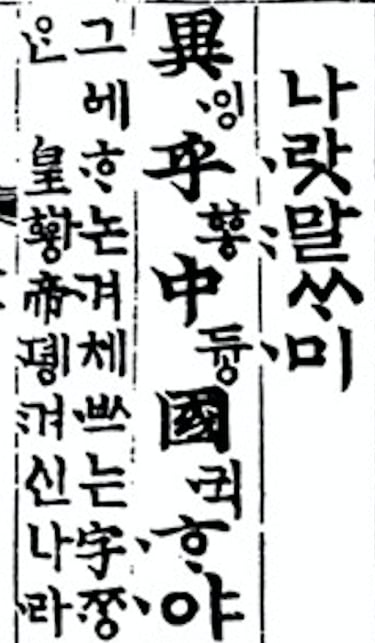 나랏말ᄊᆞ미
異잉乎ᅘᅩᇰ中듀ᇰ國귁ᄒᆞ야
그ᅌᅦᄒᆞ논겨체ᄡᅳ는字ᄍᆞᆼ
ᄋᆞᆫ皇ᅘᅪᇰ帝뎽겨신나라